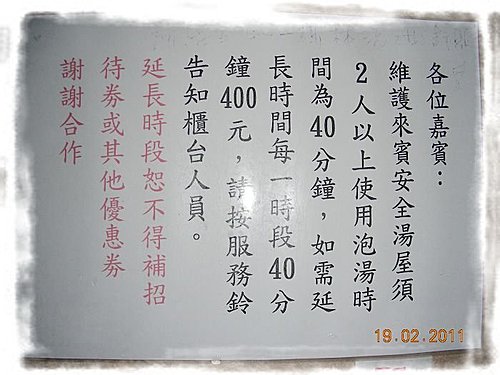 各位嘉賓：
維護來賓安全湯屋須
2人以上使用泡湯時
間為40分鐘，如需延
長時間每一時段40分
鐘400元，請按服務鈴
告知櫃台人員。
延長時段恕不得補招
待券或其他優惠券
謝謝合作
19.02.2011